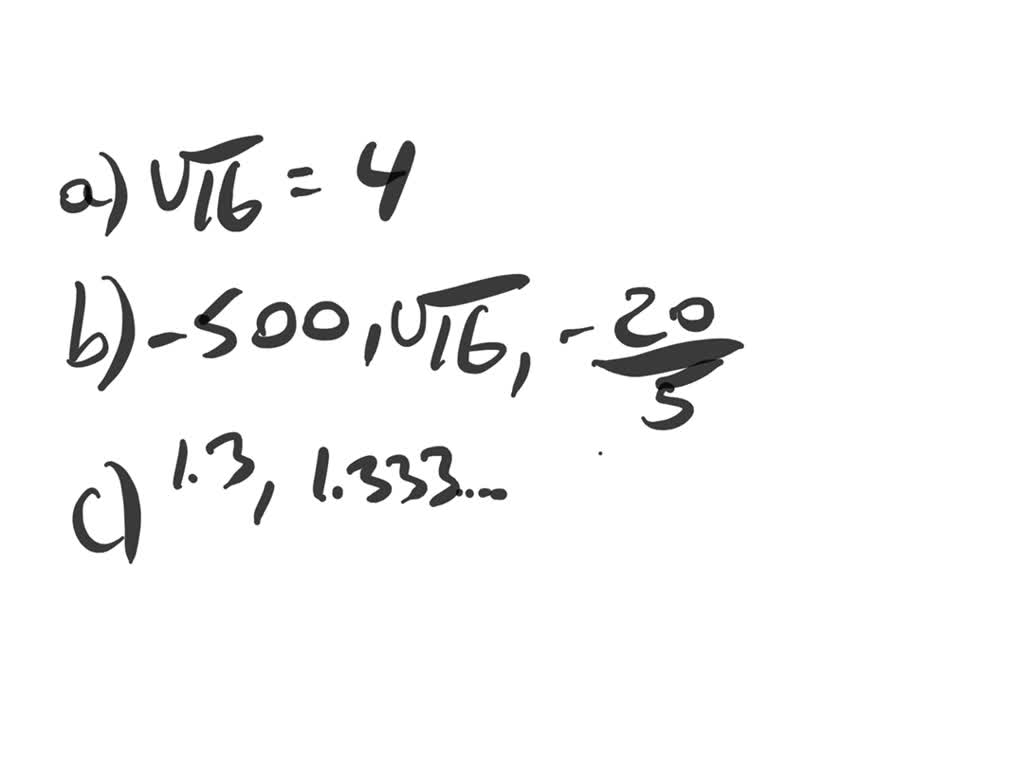 a) √16 = 4
b) -500, √16, -20/5
c) 1.3, 1.333...